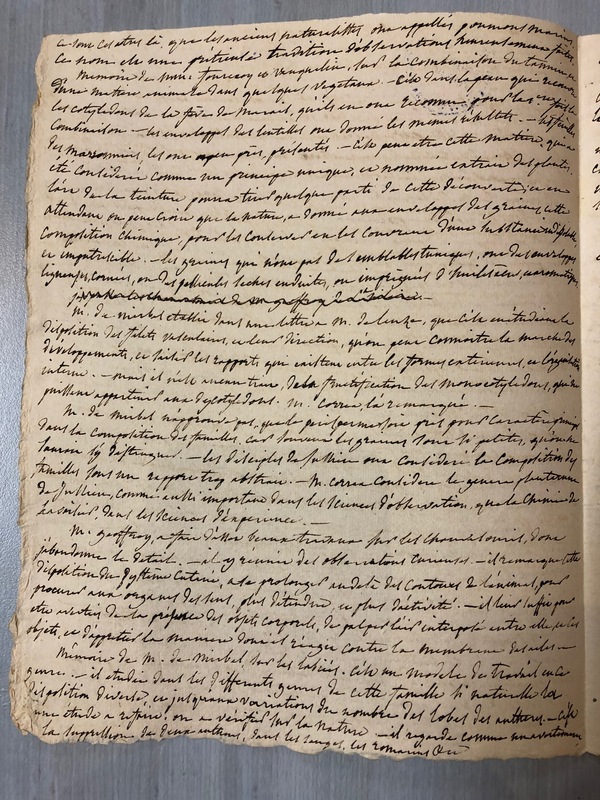 ce sont ces etres là, que les anciens naturalistes ont appellés poumons marins,
ce nom est une pretieuse tradition d'observations heureusement faites.
Memoire de mm. fourcroy et vauquelin, sur la Combinaison du tannin et
d'une matiere animale dans quelques vegetaux. — C'est dans la peau qui recouvre
les cotyledons de la feve de marais, qu'ils en ont reconnu pour les
Combinaison — les enveloppes des lentilles ont donné les mêmes resultats. —
des marronniers, les ont a peu près, présentés. — C'est peut etre cette matiere, qui a
été considérée comme un principe unique, et nommée extrait des plantes.
l'art de la teinture pourra tirer quelque parti de cette découverte; et en
attendant on peut croire que la nature, a donné aux enveloppes des graines, cette
Composition chimique, pour les Conserver en les Couvrant d'une substance indissoluble
et imputrescible. — les graines qui n'ont pas de semblables tuniques, ont des enveloppes
ligneuses, Cornées, ou des pellicules seches enduites, ou impregnées d'huiles et aromatiques
M. de mirbel établit dans une lettre a M. , que c'est en étudiant la
disposition des filets vasculaires, et leur direction, qu'on peut connoitre la marche des
développements, et saisir les rapports qui existent entre les formes exterieures, et l'organisation
interne. — mais il n'est aucun trait, de la fructification des monocotyledons, qui ne
puissent appartenir aux dicotyledons. M. Correa l'a remarqué. —
M. de mirbel n'approuve pas, que le perisperme soit pris pour caractere principal
dans la composition des familles, car souvent les graines sont si petites, qu'on ne
sauroit l'y distinguer. — les disciples de Jussieu ont Consideré la Composition des
familles sous un rapport trop abstrait. — M. Correa Considere le genera plantarum
de Jussieu, comme aussi important dans les sciences d'observation, que la Chimie de
lavoisier dans les sciences d'experience. —
M. Geoffroy, a fait d'assez beaux travaux sur les Chauvesouris, dont
j'abandonne le detail. — il y reunit des observations Curieuses. — il remarque cette
disposition du systême Cutané, a se prolonger au dela des Contours de l'animal, pour
procurer aux organes des sens, plus d'étendue, et plus d'activité. — il leur suffit pour
etre avertis de la presence des objets corporels, de palper l'air interposé entre elle, et ces
objets, et d'apprecier la maniere dont il réagit contre la membrane des ailes. —
Mémoire de M. de mirbel, sur les labiées. C'est un modele de travail en ce
genre. — il etudie dans les differents genres de cette famille si naturelle la
disposition diverse, et jusqu'aux variations du nombre des lobes des antheres. — C'est
une etude a refaire, on a verifier sur la nature — il regarde comme un avortement
la suppression de deux antheres, dans les sauges, les romarins &c